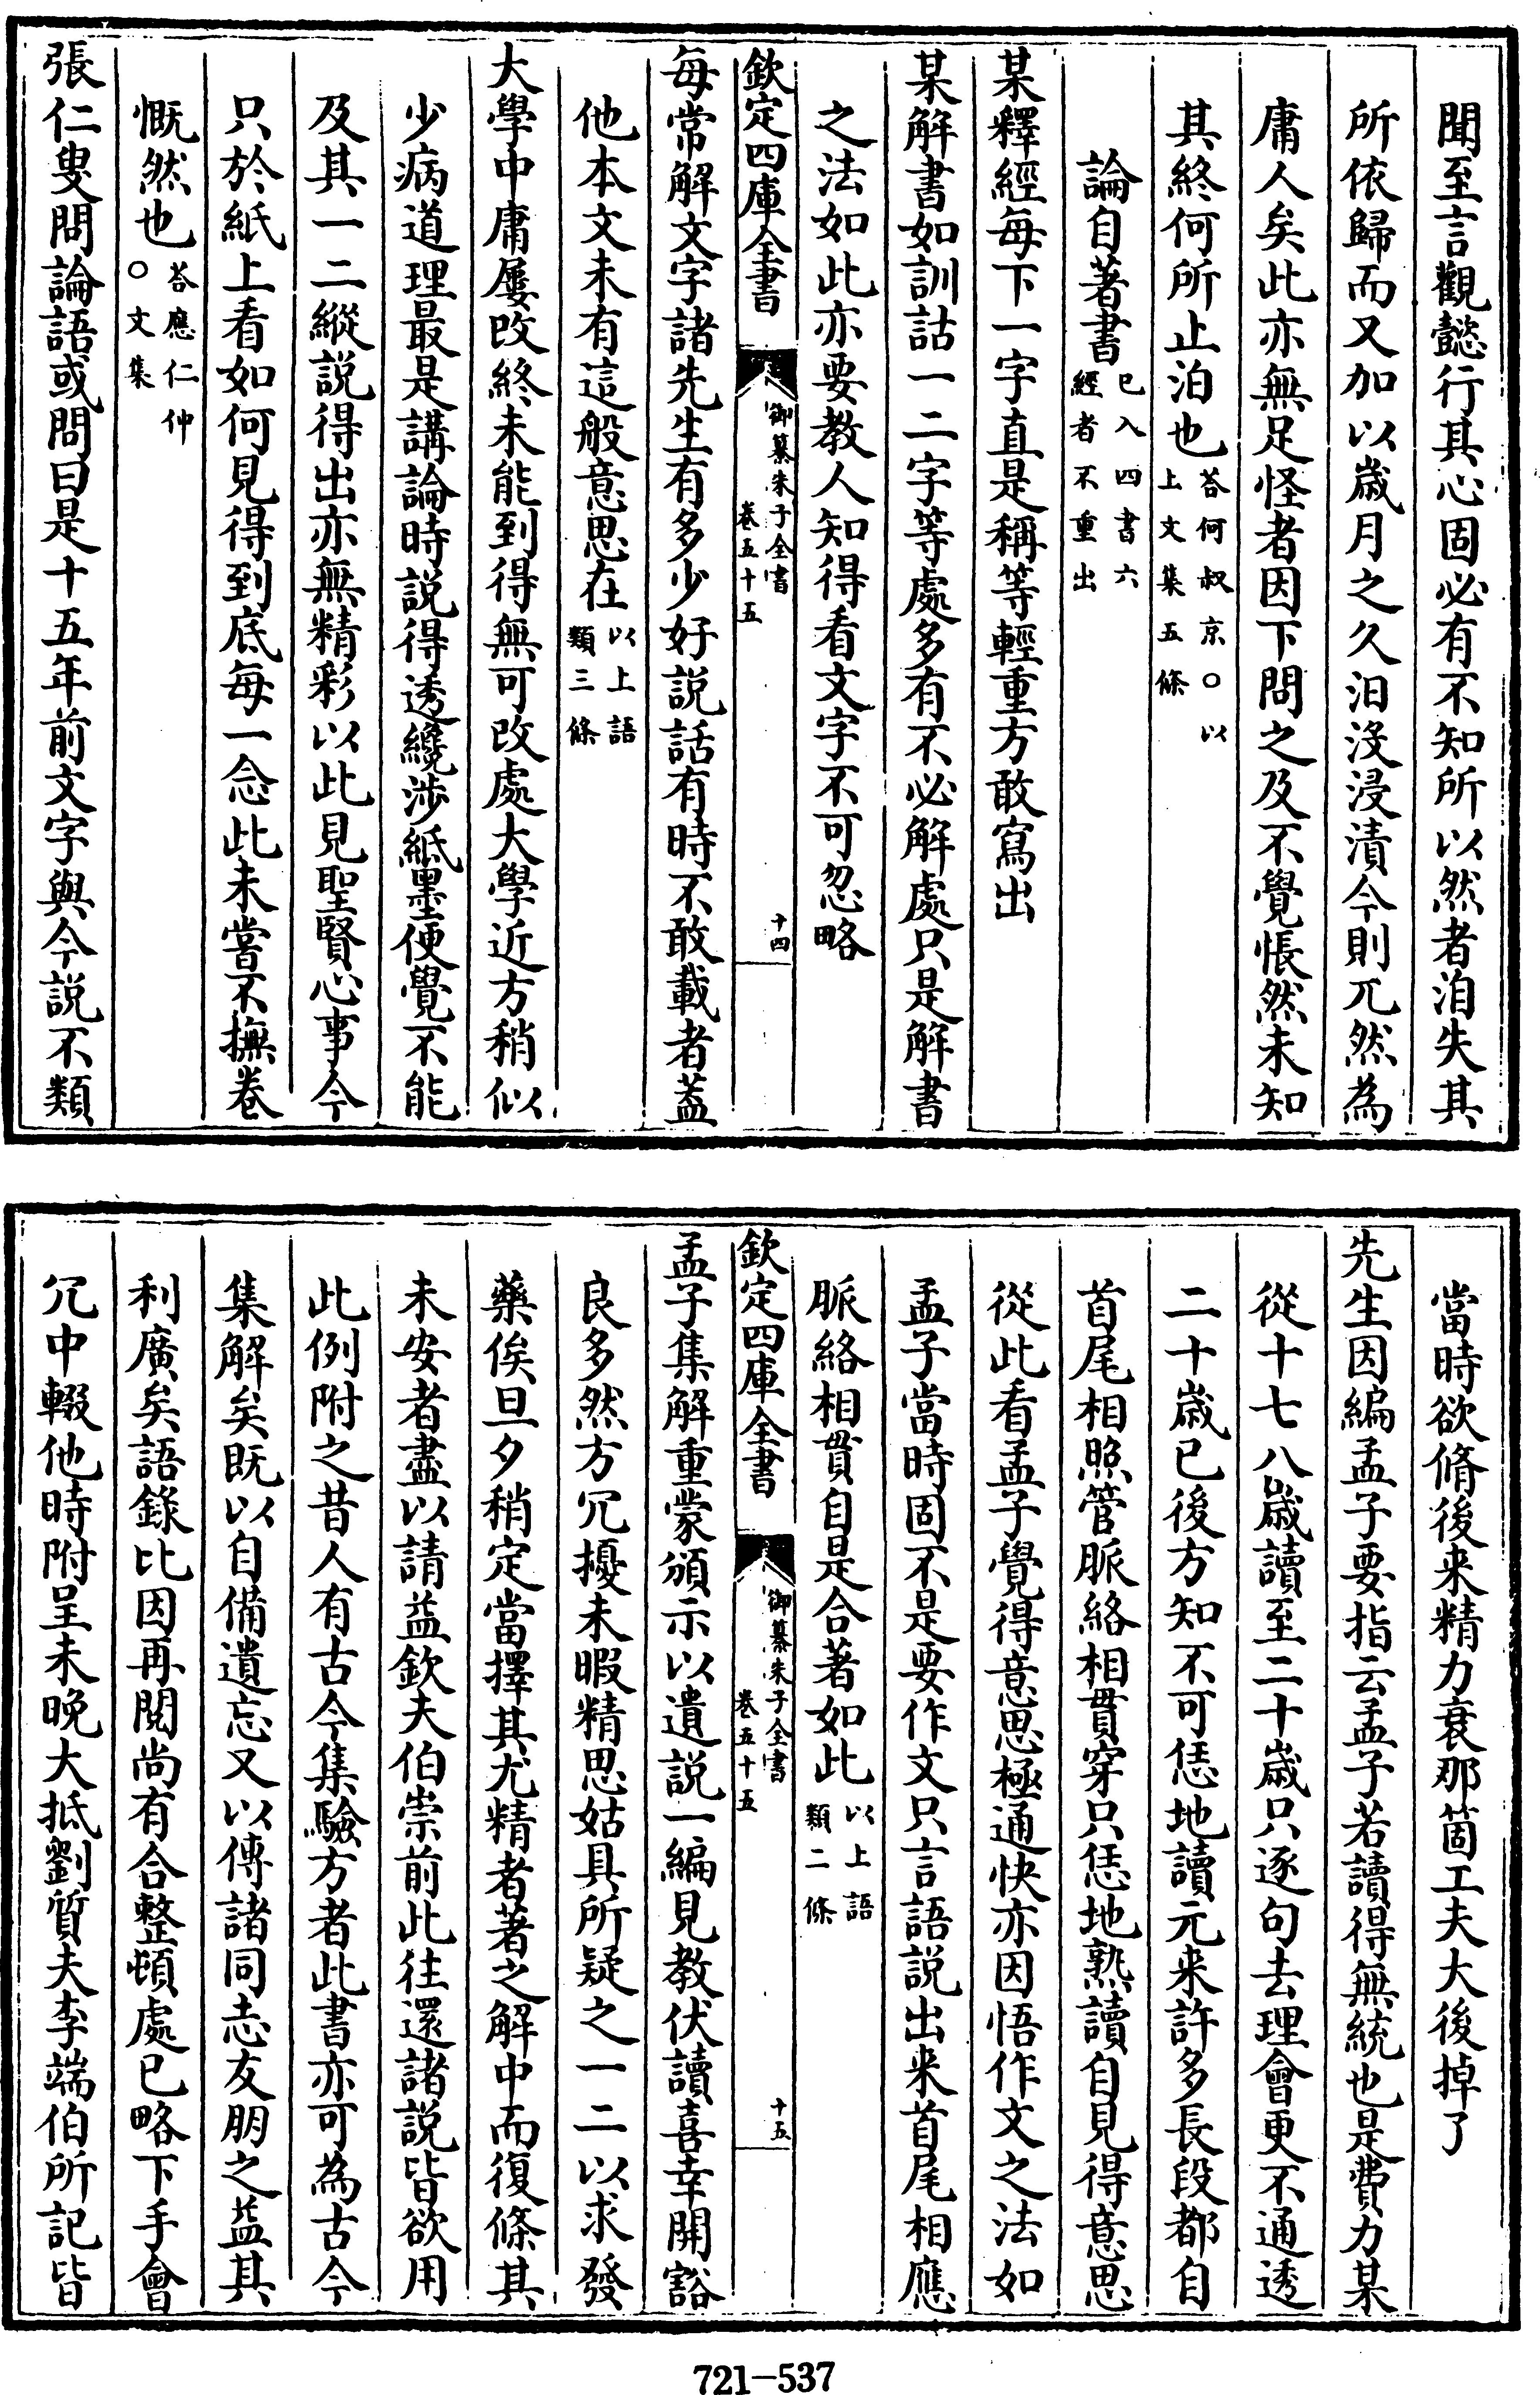 聞至言觀懿行其心固必有不知所以然者洎失其
所依歸而又加以歲月之久汩沒浸漬今則兀然為
庸人矣此亦無足怪者因下問之及不覺悵然未知
其終何所止泊也答何叔京○以上文集五條
論自著書已入四書六經者不重出
某釋經每下一字直是稱等輕重方敢寫出
某解書如訓詁一二字等處多有不必解處只是解書
之法如此亦要教人知得看文字不可忽略
欽定四庫全書 御纂朱子全書 卷五十五 十四
每常解文字諸先生有多少好説話有時不敢載者蓋
他本文未有這般意思在以上語類三條
大學中庸屢改終未能到得無可改處大學近方稍似
少病道理最是講論時説得透纔涉紙墨便覺不能
及其一二縱説得出亦無精彩以此見聖賢心事今
只於紙上看如何見得到底每一念此未嘗不撫卷
慨然也答應仁仲○文集
張仁叟問論語或問曰是十五年前文字與今説不類
當時欲脩後来精力衰那箇工夫大後掉了
先生因編孟子要指云孟子若讀得無統也是費力某
從十七八歲讀至二十歲只逐句去理會更不通透
二十歲已後方知不可恁地讀元来許多長段都自
首尾相照管脈絡相貫穿只恁地熟讀自見得意思
從此看孟子覺得意思極通快亦因悟作文之法如
孟子當時固不是要作文只言語説出来首尾相應
脈絡相貫自是合著如此以上語類二條
欽定四庫全書 御纂朱子全書 卷五十五 十五
孟子集解重蒙頒示以遺説一編見教伏讀喜幸開豁
良多然方冗擾未暇精思姑具所疑之一二以求發
藥俟旦夕稍定當擇其尤精者著之解中而復條其
未安者盡以請益欽夫伯崇前此往還諸説皆欲用
此例附之昔人有古今集驗方者此書亦可為古今
集解矣既以自備遺忘又以傳諸同志友朋之益其
利廣矣語錄比因再閱尚有合整頓處已略下手會
冗中輟他時附呈未晚大抵劉質夫李端伯所記皆
721-537